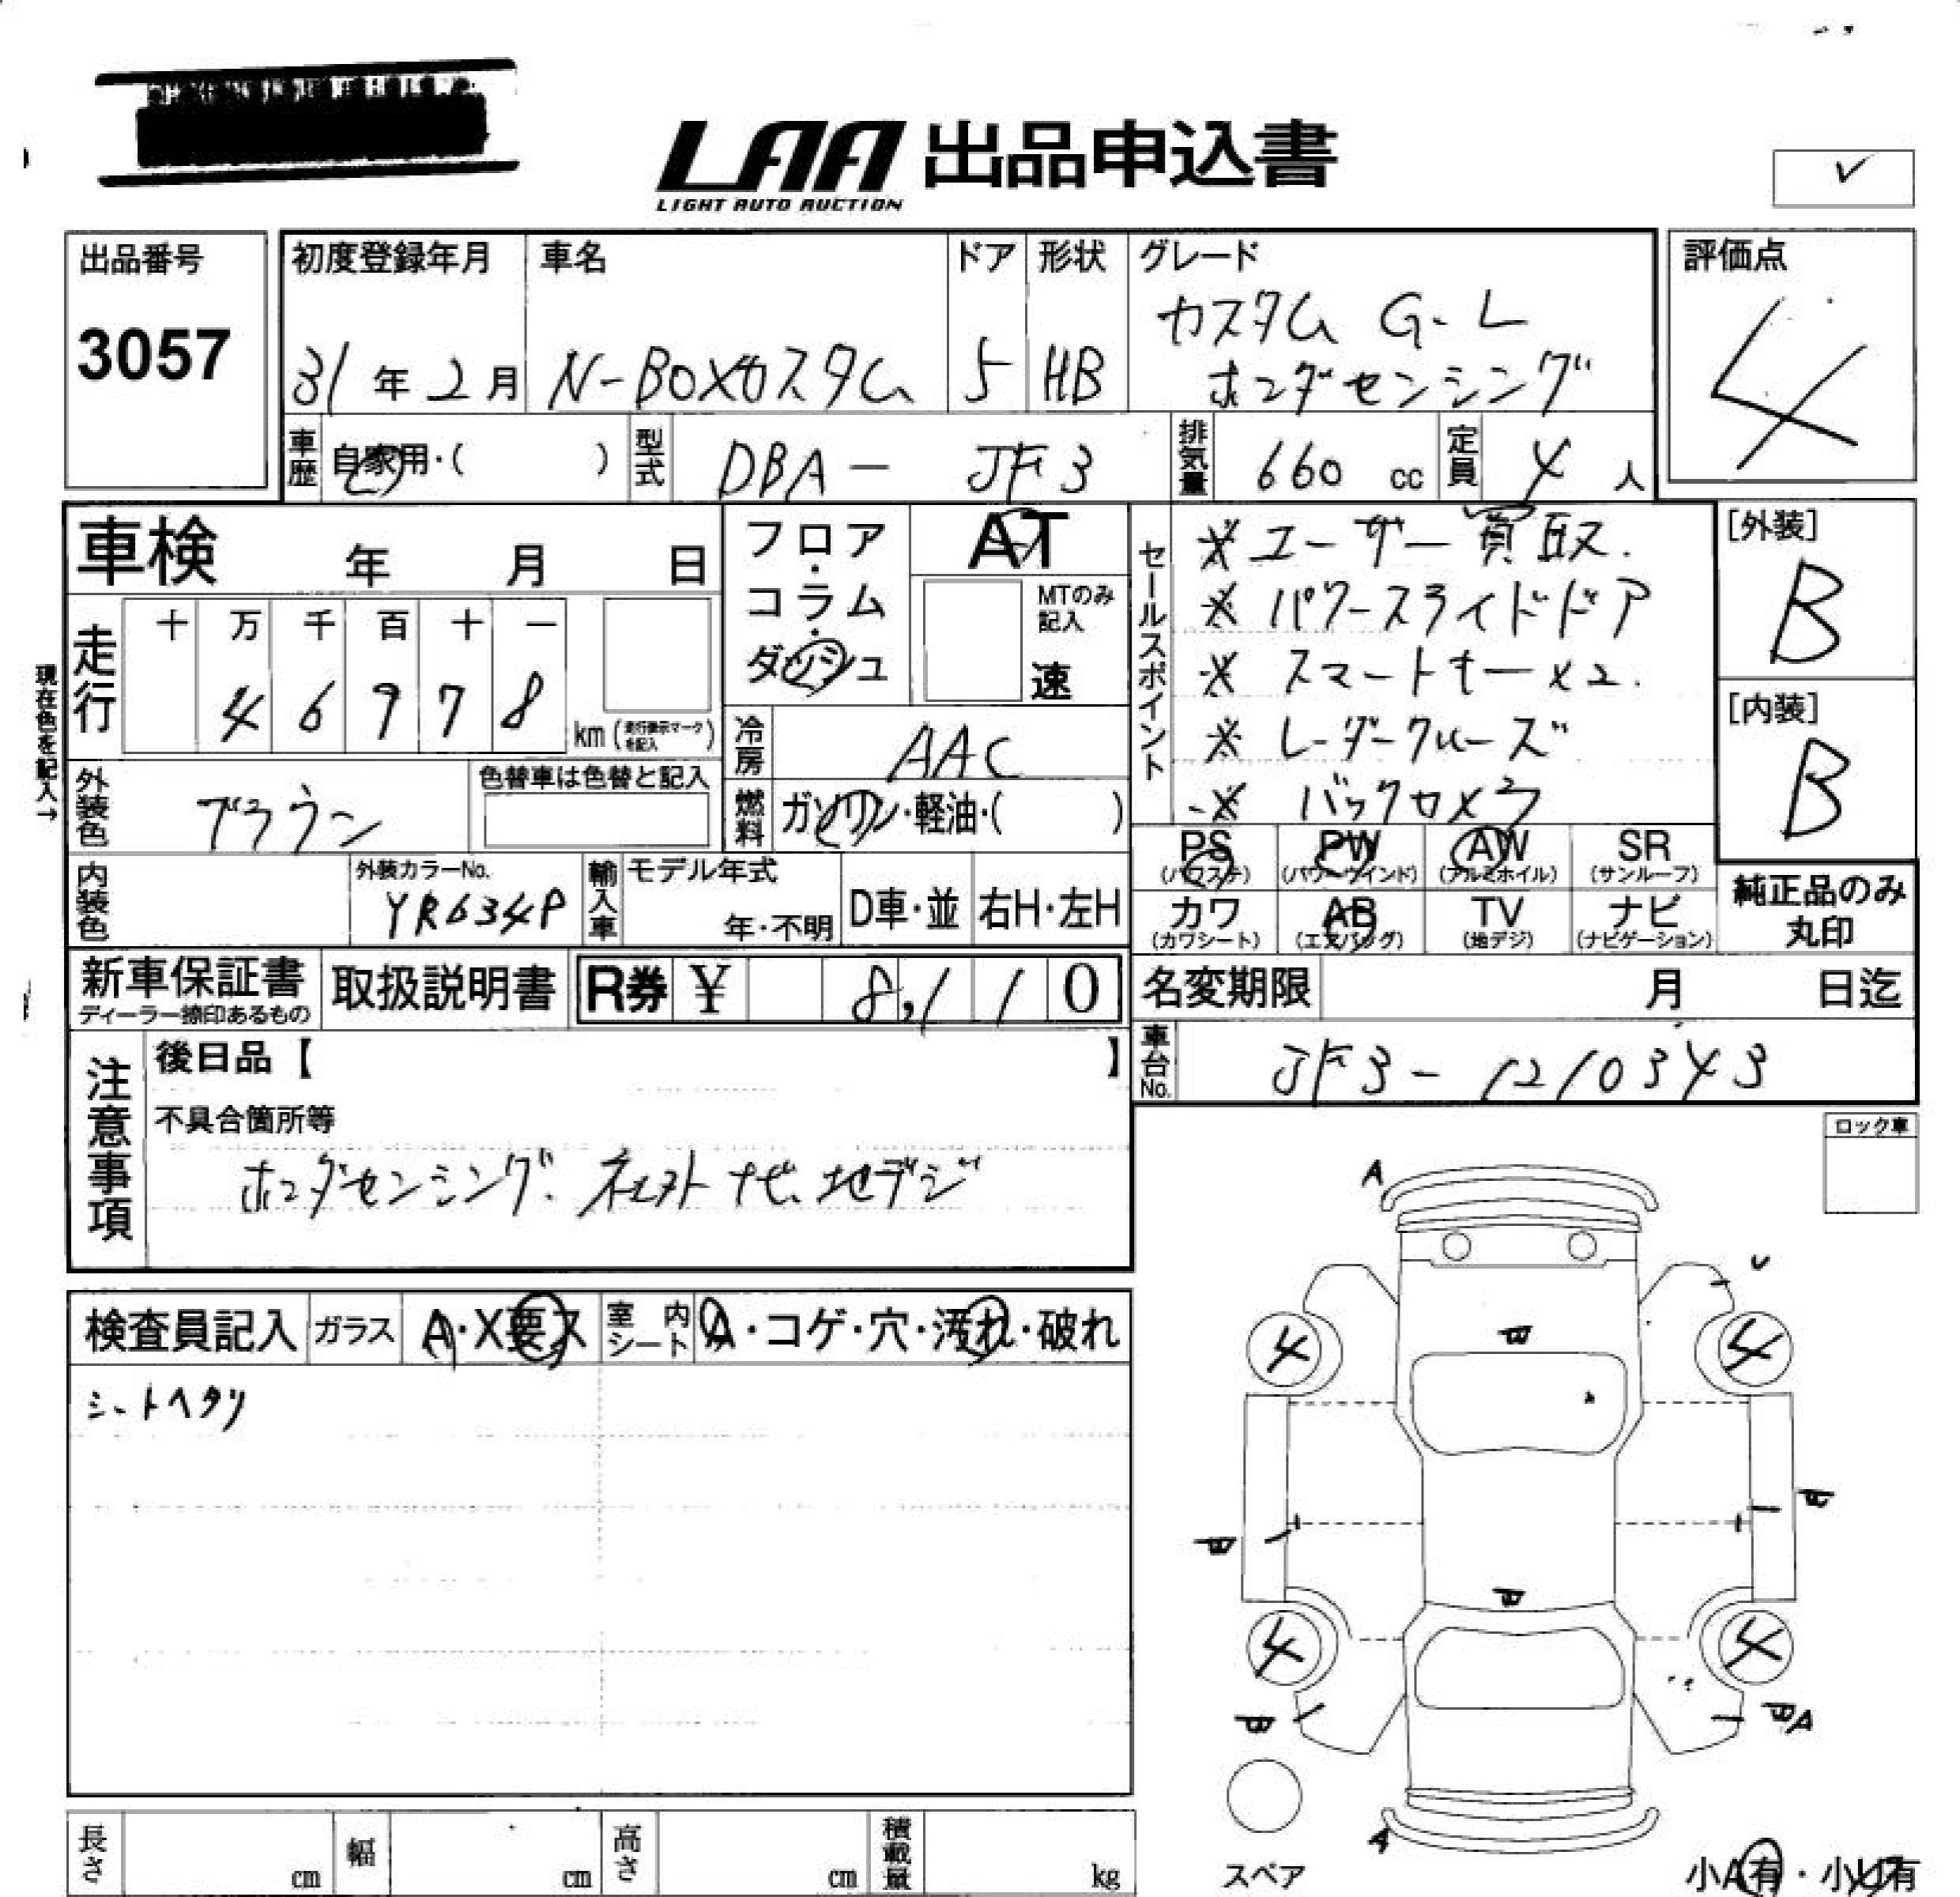 LAA 出品申込書
LIGHT AUTO AUCTION
✓
出品番号
3057
初度登録年月
31年2月
車名
N-BOXカスタム
ドア
5
形状
HB
グレード
カスタム G・L
ホンダセンシング
評価点
4
車歴 自家用・( )
型式 DBA- JF3
排気量 660 cc
定員 4 人
車検 年 月 日
フロア・コラム・ダッシュ
AT
MTのみ記入
速
セールスポイント
※ユーザー買取.
※パワースライドドア
※スマートキー×2.
※レーダークルーズ
※バックカメラ
[外装]
B
[内装]
B
現在色を記入→
走行
十 万 千 百 十 一
4 6 9 7 8
km(走行表示マークを記入)
冷房 AAC
燃料 ガソリン・軽油・( )
外装色 ブラウン
色替車は色替と記入
内装色
外装カラーNo.
YR634P
輸入車
モデル年式
年・不明
D車・並
右H・左H
PS (パワステ)
PW (パワーウインド)
AW (アルミホイル)
SR (サンルーフ)
カワ (カワシート)
AB (エアバッグ)
TV (地デジ)
ナビ (ナビゲーション)
純正品のみ
丸印
新車保証書
ディーラー捺印あるもの
取扱説明書
R券 ¥ 8,110
名変期限 月 日迄
車台No. JF3-1210343
注意事項
後日品【 】
不具合箇所等
ホンダセンシング. ナビ、地デジ
ロック車
検査員記入
ガラス A・X要ス
室内シート A・コゲ・穴・汚れ・破れ
シートヘタリ
A
4 4
4 4
A
A
スペア
小A有・小U有
長さ cm
幅 cm
高さ cm
積載量 kg